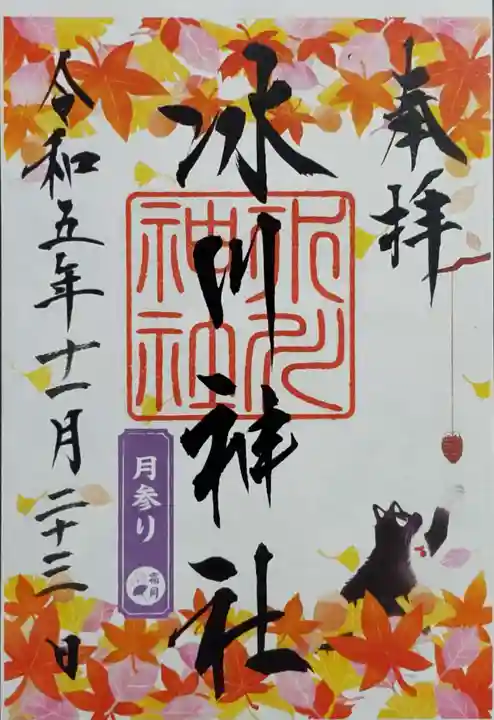 奉拝
氷川神社
氷川
神社
令和五年十一月二十三日
月参り
霜月